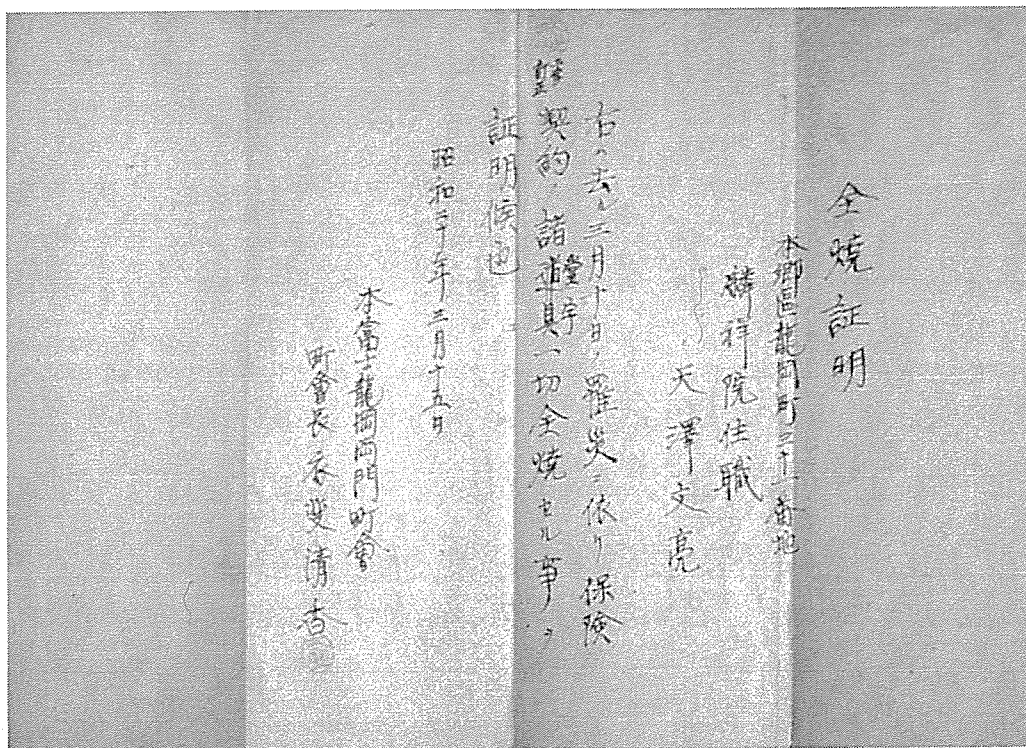 全焼証明
本郷區龍岡町三十一番地
麟祥院住職
天澤文亮
右ハ去ル三月十日ノ罹災ニ依リ保険
契約ノ諸堂宇道具一切全焼セル事ヲ
証明候也
昭和二十年三月十五日
本富士龍岡両門町會
町會長 清吉